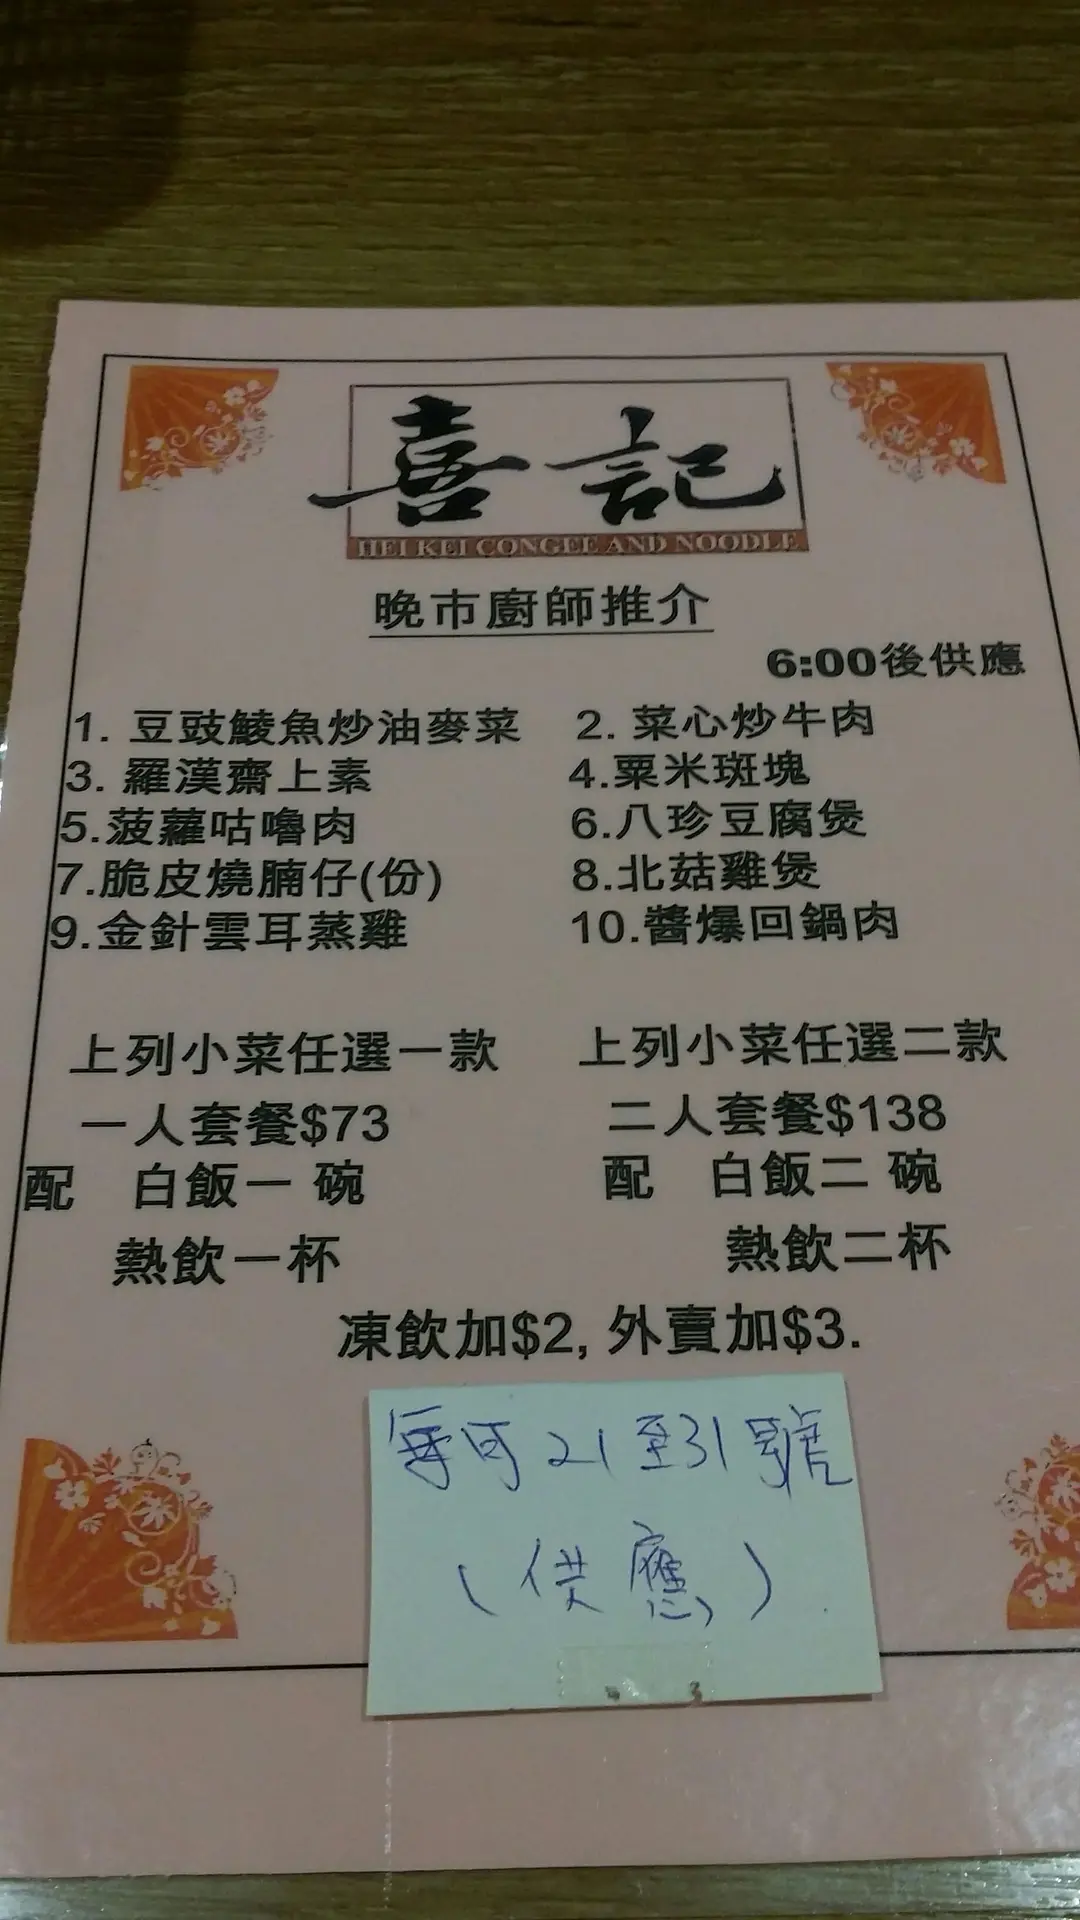 喜記
HEI KEI CONGEE AND NOODLE
晚市廚師推介
6:00後供應
1. 豆豉鯪魚炒油麥菜 2. 菜心炒牛肉
3. 羅漢齋上素 4.粟米斑塊
5.菠蘿咕嚕肉 6.八珍豆腐煲
7.脆皮燒腩仔(份) 8.北菇雞煲
9.金針雲耳蒸雞 10.醬爆回鍋肉
上列小菜任選一款 上列小菜任選二款
一人套餐$73 二人套餐$138
配 白飯一 碗 配 白飯二 碗
熱飲一杯 熱飲二杯
凍飲加$2, 外賣加$3.
每 21至31號
(供應)